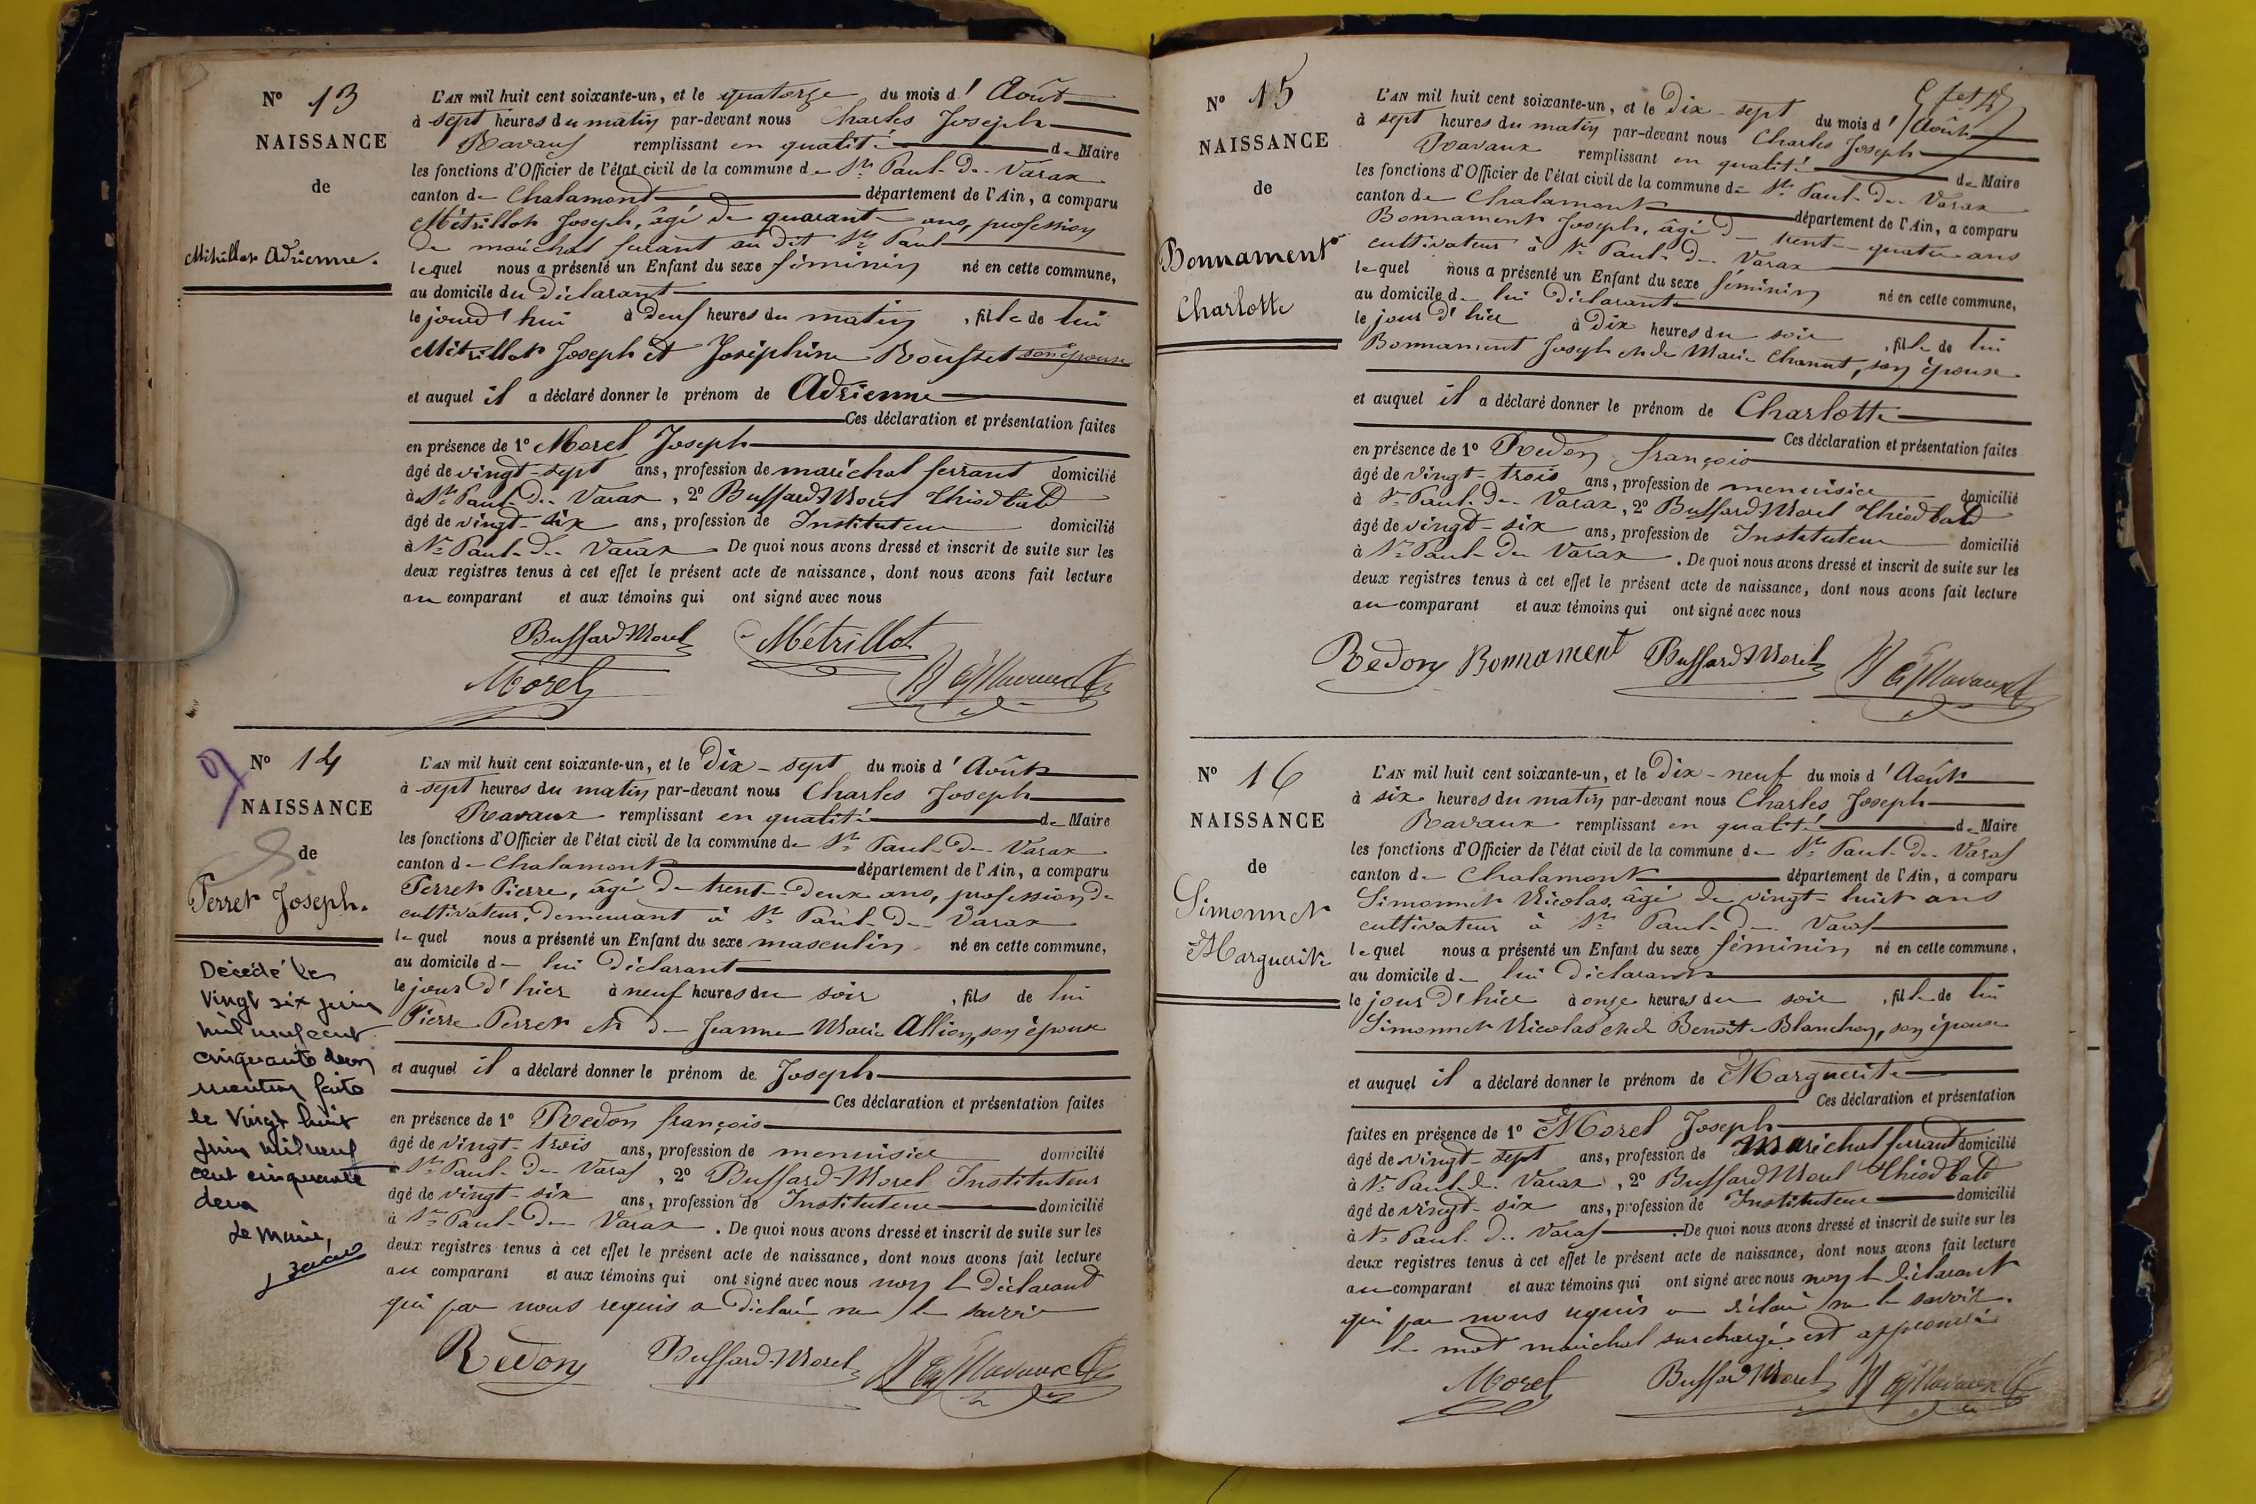 N° 13
NAISSANCE
de
Métrillot Adrienne.
L'AN mil huit cent soixante-un, et le quatorze du mois d'Août
à sept heures du matin par-devant nous Charles Joseph
Ravaux remplissant en qualité de Maire
les fonctions d'Officier de l'état civil de la commune de St Paul-de-Varax
canton de Chalamont département de l'Ain, a comparu
Métrillot Joseph, âgé de quarante ans, profession
de maréchal ferrant au dit St Paul
lequel nous a présenté un Enfant du sexe féminin né en cette commune,
au domicile du déclarant
le jourd'hui à deux heures du matin, fille de lui
Métrillot Joseph et Joséphine Rousset son épouse
et auquel il a déclaré donner le prénom de Adrienne
Ces déclaration et présentation faites
en présence de 1° Morel Joseph
âgé de vingt-sept ans, profession de maréchal ferrant domicilié
à St Paul-de-Varax, 2° Buffard-Morel Thiodbald
âgé de vingt-six ans, profession de Instituteur domicilié
à St Paul-de-Varax De quoi nous avons dressé et inscrit de suite sur les
deux registres tenus à cet effet le présent acte de naissance, dont nous avons fait lecture
au comparant et aux témoins qui ont signé avec nous
Buffard-Morel Métrillot
Morel Ravaux
N° 14
NAISSANCE
de
Perret Joseph.
Décédé le
vingt six juin
mil neuf cent
cinquante deux
mention faite
le vingt huit
juin mil neuf
cent cinquante
deux
Le Maire,
L'AN mil huit cent soixante-un, et le dix-sept du mois d'Août
à sept heures du matin par-devant nous Charles Joseph
Ravaux remplissant en qualité de Maire
les fonctions d'Officier de l'état civil de la commune de St Paul-de-Varax
canton de Chalamont département de l'Ain, a comparu
Perret Pierre, âgé de trente-deux ans, profession de
cultivateur, demeurant à St Paul-de-Varax
lequel nous a présenté un Enfant du sexe masculin né en cette commune,
au domicile de lui déclarant
le jour d'hier à neuf heures du soir, fils de lui
Pierre Perret et de Jeanne Marie Allion, son épouse
et auquel il a déclaré donner le prénom de Joseph
Ces déclaration et présentation faites
en présence de 1° Redon françois
âgé de vingt-trois ans, profession de menuisier domicilié
à St Paul-de-Varax, 2° Buffard-Morel Instituteur
âgé de vingt-six ans, profession de Instituteur domicilié
à St Paul-de-Varax. De quoi nous avons dressé et inscrit de suite sur les
deux registres tenus à cet effet le présent acte de naissance, dont nous avons fait lecture
au comparant et aux témoins qui ont signé avec nous non le déclarant
qui par nous requis a déclaré ne le savoir
Redon Buffard-Morel Ravaux
N° 15
NAISSANCE
de
Bonnament
Charlotte
L'AN mil huit cent soixante-un, et le dix-sept du mois d'Août
à sept heures du matin par-devant nous Charles Joseph
Ravaux remplissant en qualité de Maire
les fonctions d'Officier de l'état civil de la commune de St Paul-de-Varax
canton de Chalamont département de l'Ain, a comparu
Bonnament Joseph, âgé de trente-quatre ans
cultivateur à St Paul-de-Varax
lequel nous a présenté un Enfant du sexe féminin né en cette commune,
au domicile de lui déclarant
le jour d'hier à dix heures du soir, fille de lui
Bonnament Joseph et de Marie Chanut, son épouse
et auquel il a déclaré donner le prénom de Charlotte
Ces déclaration et présentation faites
en présence de 1° Redon françois
âgé de vingt-trois ans, profession de menuisier domicilié
à St Paul-de-Varax, 2° Buffard-Morel Thiodbald
âgé de vingt-six ans, profession de Instituteur domicilié
à St Paul-de-Varax. De quoi nous avons dressé et inscrit de suite sur les
deux registres tenus à cet effet le présent acte de naissance, dont nous avons fait lecture
au comparant et aux témoins qui ont signé avec nous
Redon Bonnament Buffard-Morel Ravaux
N° 16
NAISSANCE
de
Simonnet
Marguerite
L'AN mil huit cent soixante-un, et le dix-neuf du mois d'Août
à six heures du matin par-devant nous Charles Joseph
Ravaux remplissant en qualité de Maire
les fonctions d'Officier de l'état civil de la commune de St Paul-de-Varax
canton de Chalamont département de l'Ain, a comparu
Simonnet Nicolas, âgé de vingt-huit ans
cultivateur à St Paul-de-Varax
lequel nous a présenté un Enfant du sexe féminin né en cette commune,
au domicile de lui déclarant
le jour d'hier à onze heures du soir, fille de lui
Simonnet Nicolas et de Benoîte Blanchon, son épouse
et auquel il a déclaré donner le prénom de Marguerite
Ces déclaration et présentation
faites en présence de 1° Morel Joseph
âgé de vingt-sept ans, profession de maréchal ferrant domicilié
à St Paul-de-Varax, 2° Buffard-Morel Thiodbald
âgé de vingt-six ans, profession de Instituteur domicilié
à St Paul-de-Varax. De quoi nous avons dressé et inscrit de suite sur les
deux registres tenus à cet effet le présent acte de naissance, dont nous avons fait lecture
au comparant et aux témoins qui ont signé avec nous non le déclarant
qui par nous requis a déclaré ne le savoir.
le mot maréchal surchargé est approuvé
Morel Buffard-Morel Ravaux